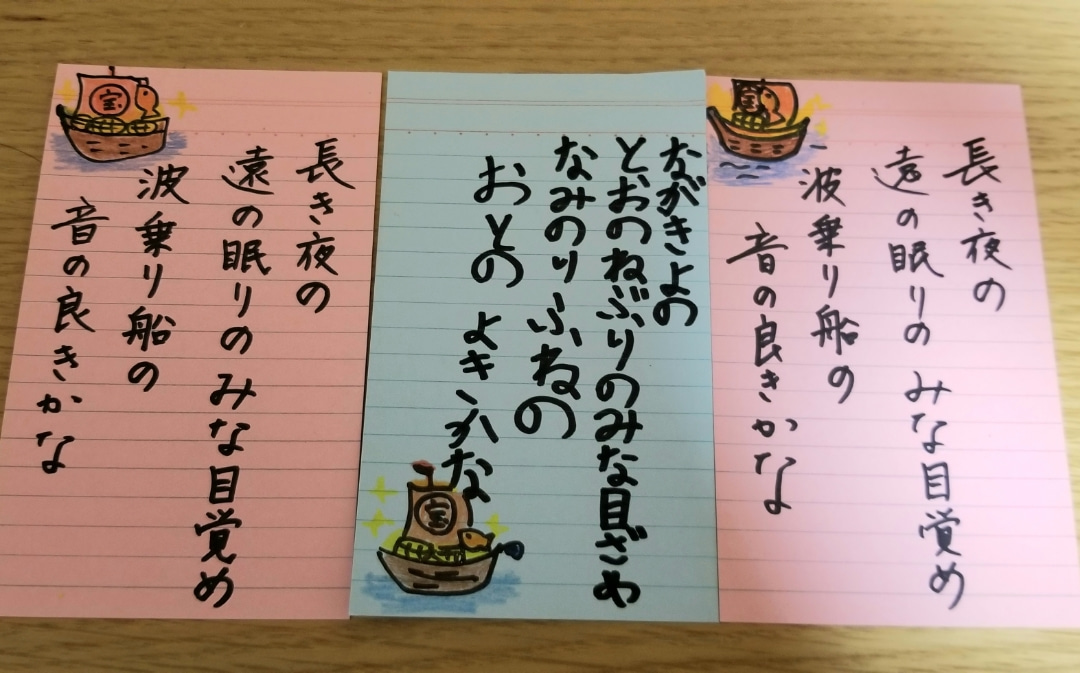 長き夜の
遠の眠りの みな目覚め
波乗り船の
音の良きかな
宝
ながきよの
とおのねぶりのみな目ざめ
なみのりふねの
おとの よきかな
宝
長き夜の
遠の眠りの みな目覚め
波乗り船の
音の良きかな
宝